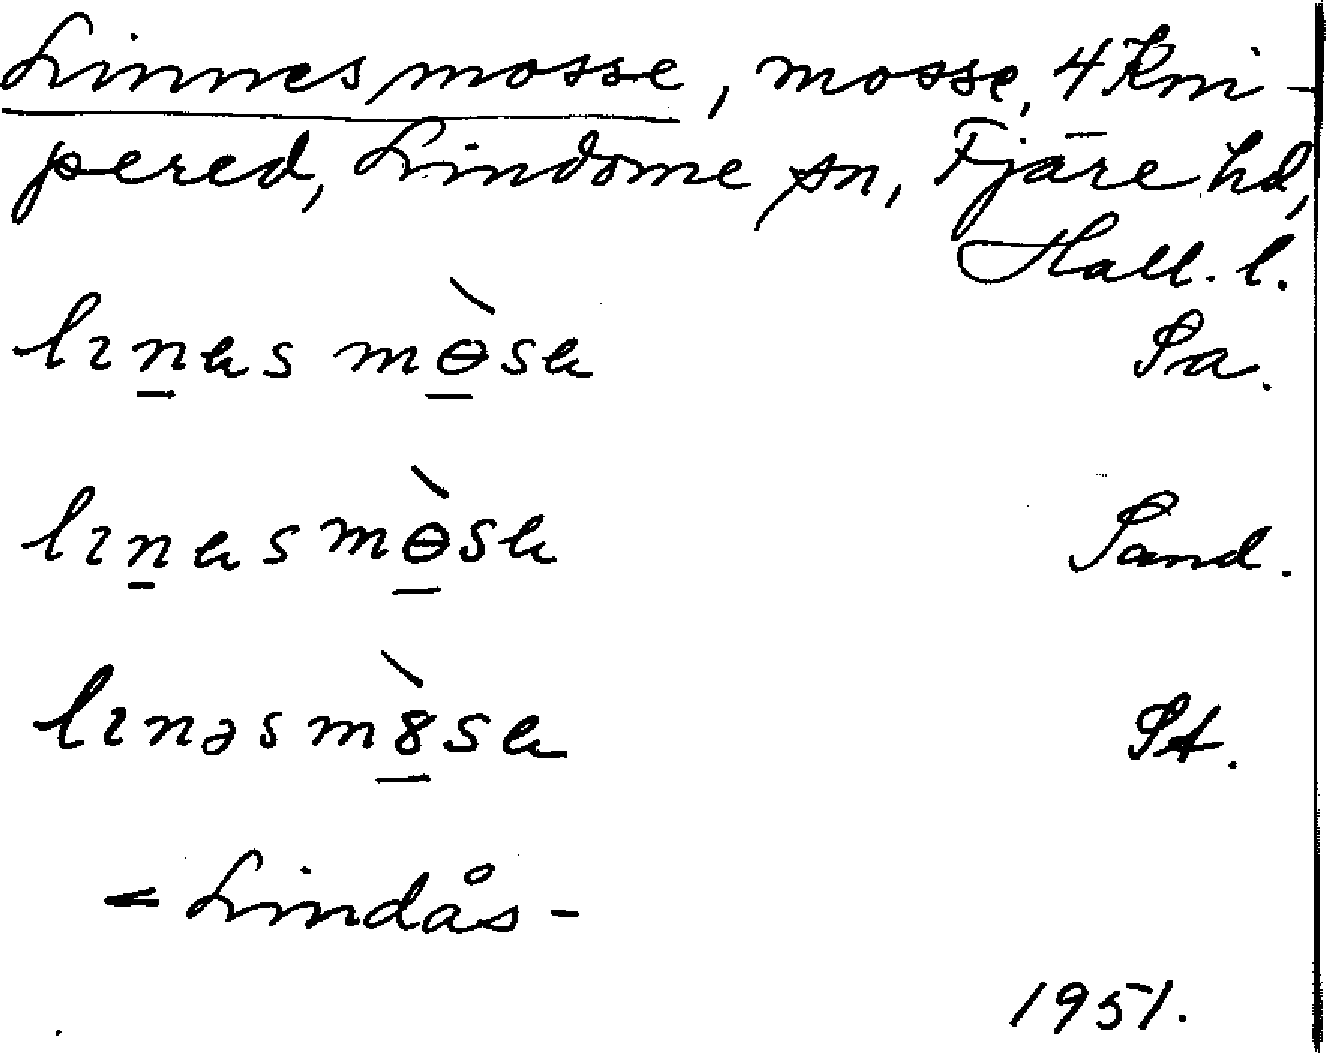 Linnesmosse, mosse, 4 Kni-
pered, Lindome sn, Fjäre hd,
Hall. l.
lınas mɵ̀sa Sa.
lınasmɵ̀sa Sand.
lınəsm8̀sa St.
< Lindås-
1951.